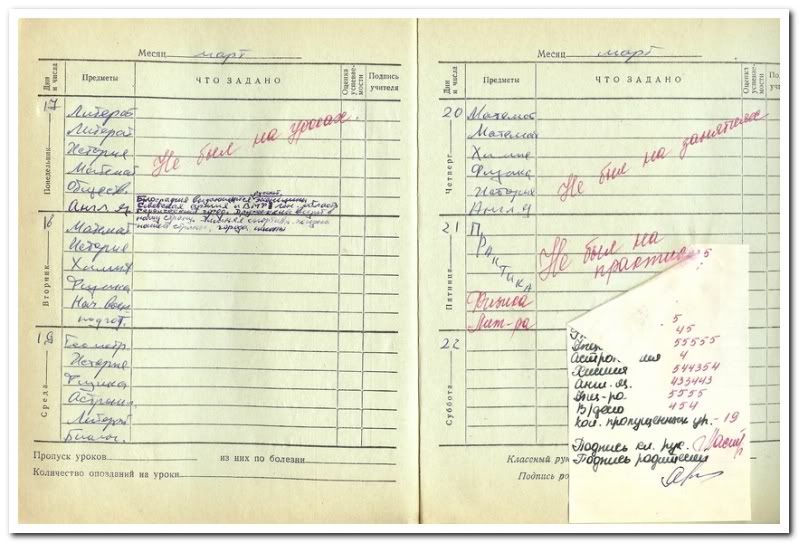 Месяц март
Дни и числа
Предметы
ЧТО ЗАДАНО
Оценка успеваемости
Подпись учителя
17
Понедельник
Литерат
Литерат
История
Математ
Обществ.
Англ. яз
Не был на уроках
Биография выдающейся женщины
Советская армия и ВМФ
нашей страны, города, школы
18
Вторник
Математ
История
Химия
Физика
Нач воен
подгот.
19
Среда
Геометр.
История
Физика
Астроном.
Литерат
Биолог.
Пропуск уроков из них по болезни
Количество опозданий на уроки
Месяц март
Дни и числа
Предметы
ЧТО ЗАДАНО
Оценка успеваемости
Подпись учителя
20
Четверг
Математ
Математ
Химия
Физика
История
Англ. Я
Не был на занятиях
21
Пятница
ПРАКТИКА
Не был на практике
Физика
Лит-ра
22
Суббота
5
5
45
55555
Астрономия 4
Химия 544354
Англ. яз. 433443
Физ-ра 5555
В/дело 454
Кол. пропущенных ур. - 19
Подпись кл. рук.
Подпись родителей
Классный рук
Подпись ро